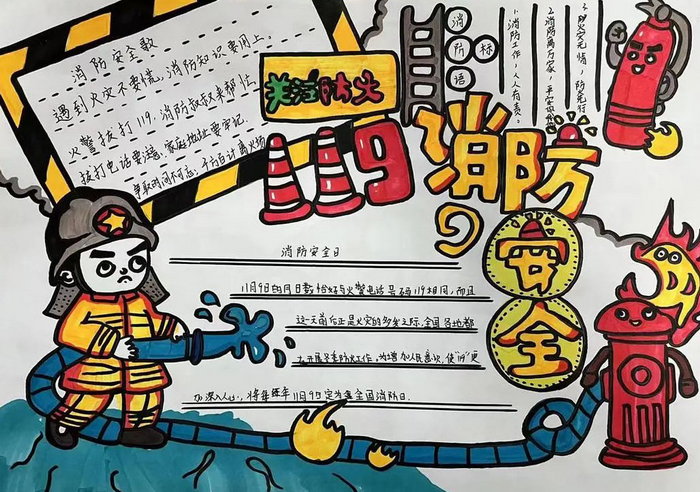 消防安全歌
遇到火灾不要慌,消防知识要用上。
火警拨打119,消防叔叔来帮忙
拨打电话要清,家庭地址要牢记,
争取时间不可忘,千方百计离火场
关注防火
119
消防
标语
1.消防工作,人人有责。
2.消防万家,平安
3.防火灾无情,防先行
消防
安全
消防安全日
11月9日的月日数恰好与火警电话号码119相同,而且
这一天前后正是火灾的多发之际,全国各地都
在开展冬季防火工作。为增加人民意识,使"119"更
加深入人心,将每年11月9日定为全国消防日.